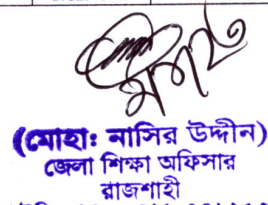 (মোহা: নাসির উদ্দীন)
জেলা শিক্ষা অফিসার
রাজশাহী